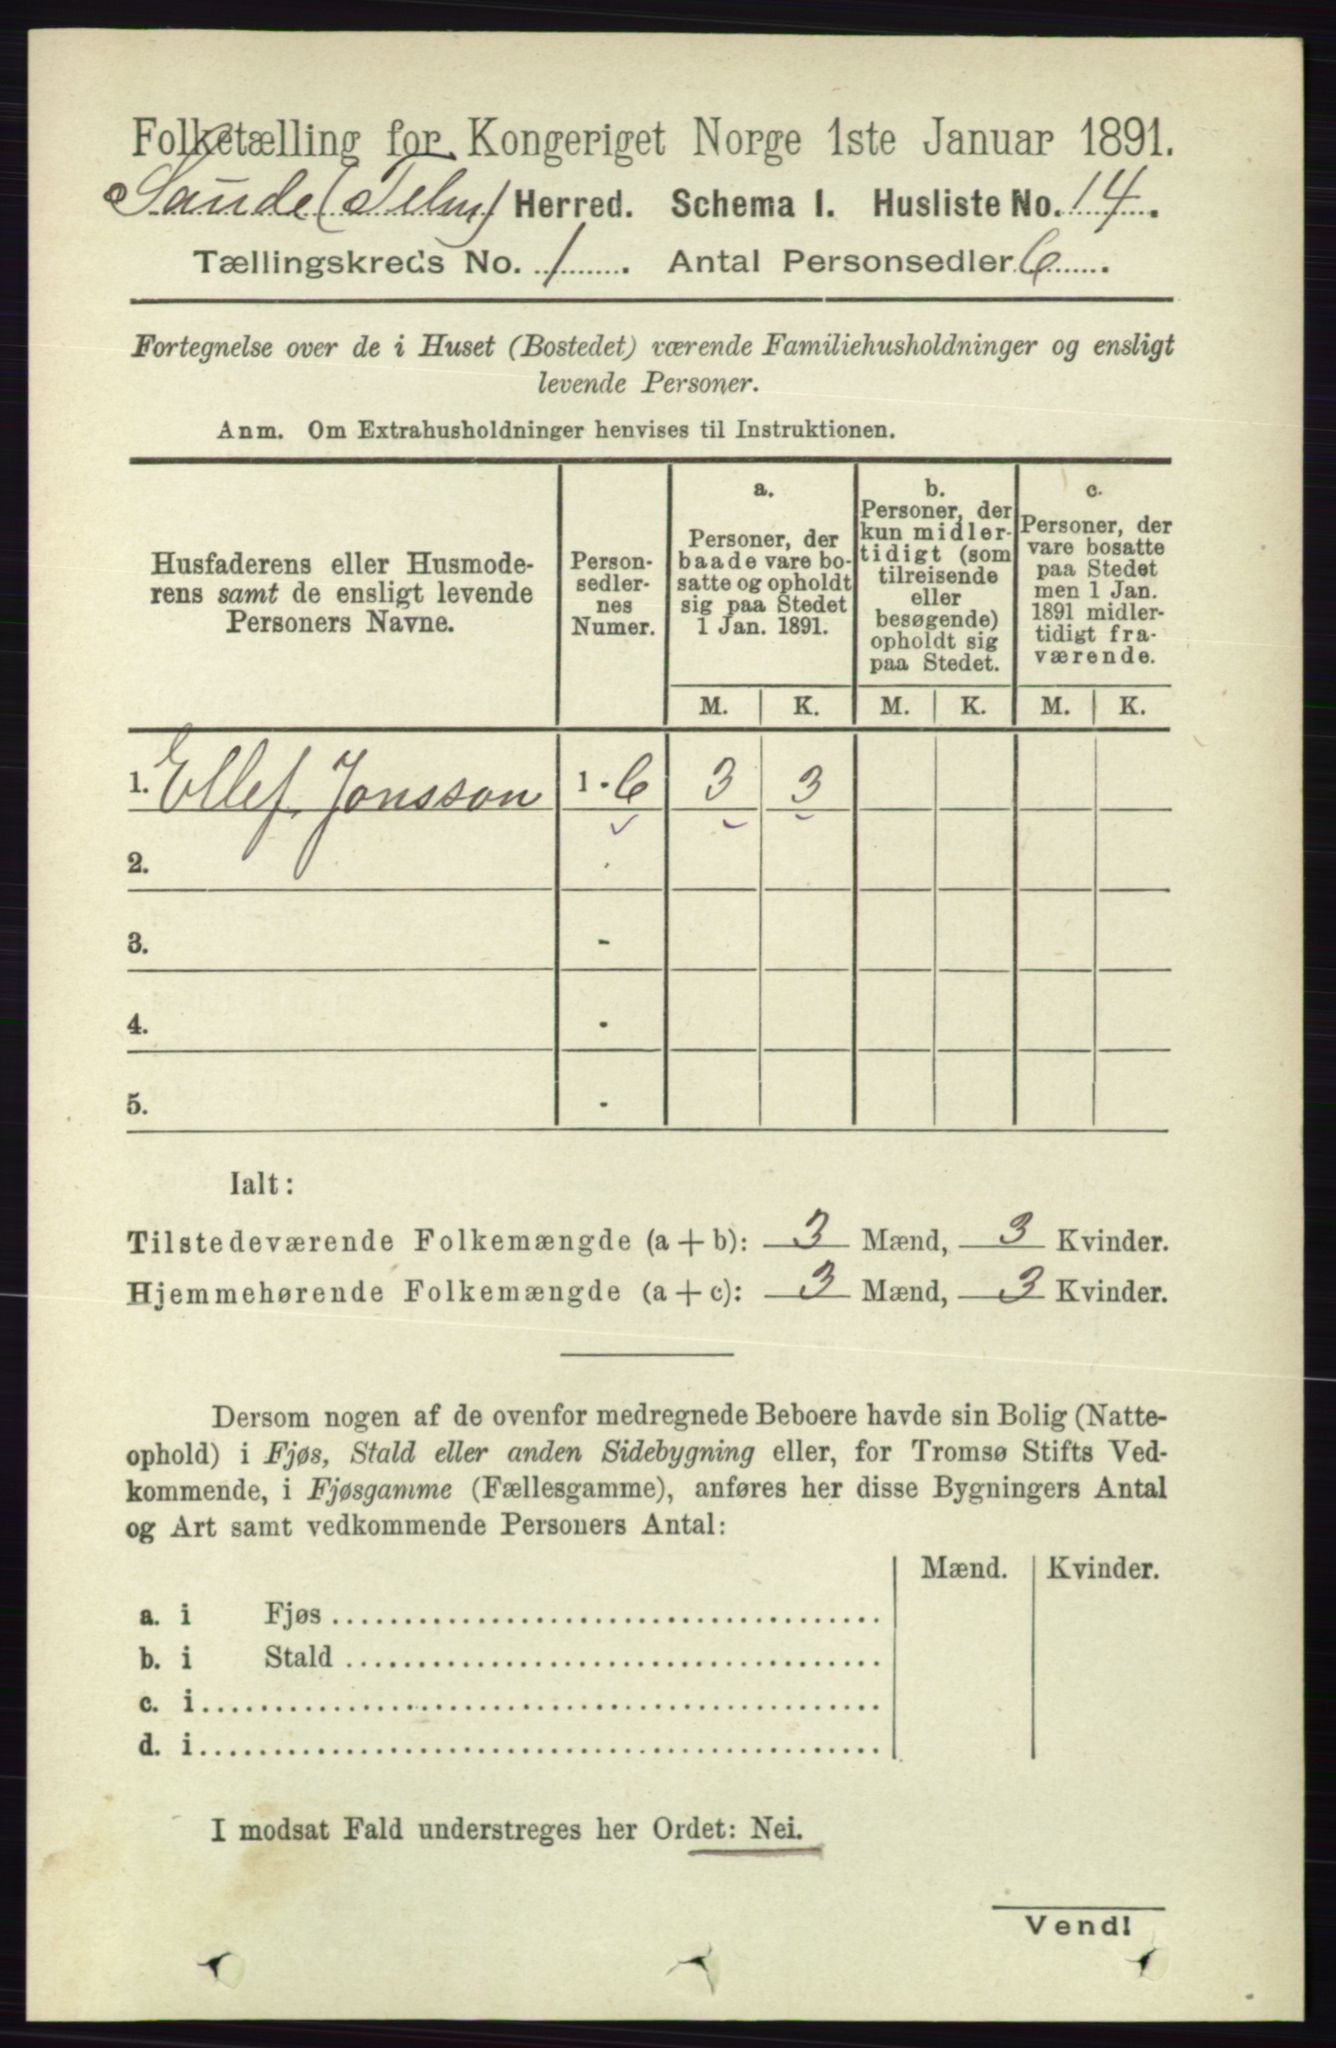 Folketælling for Kongeriget Norge 1ste Januar 1891.
Saude (Telm) Herred. Schema I. Husliste No. 14.
Tællingskreds No. 1. Antal Personsedler 6.
Fortegnelse over de i Huset (Bostedet) værende Familiehusholdninger og ensligt
levende Personer.
Anm. Om Extrahusholdninger henvises til Instruktionen.
Husfaderens eller Husmode-
rens samt de ensligt levende
Personers Navne.
Person-
sedler-
nes
Numer.
a.
Personer, der
baade vare bo-
satte og opholdt
sig paa Stedet
1 Jan. 1891.
b.
Personer, der
kun midler-
tidigt (som
tilreisende
eller
besøgende)
opholdt sig
paa Stedet.
c.
Personer, der
vare bosatte
paa Stedet
men 1 Jan.
1891 midler-
tidigt fra-
værende.
M. K. M. K. M. K.
1. Ellef Jonsson 1 - 6 3 3
2.
3. -
4. -
5. -
Ialt:
Tilstedeværende Folkemængde (a + b): 3 Mænd, 3 Kvinder.
Hjemmehørende Folkemængde (a + c): 3 Mænd, 3 Kvinder.
Dersom nogen af de ovenfor medregnede Beboere havde sin Bolig (Natte-
ophold) i Fjøs, Stald eller anden Sidebygning eller, for Tromsø Stifts Ved-
kommende, i Fjøsgamme (Fællesgamme), anføres her disse Bygningers Antal
og Art samt vedkommende Personers Antal:
Mænd. Kvinder.
a. i Fjøs
b. i Stald
c. i
d. i
I modsat Fald understreges her Ordet: Nei.
Vend!